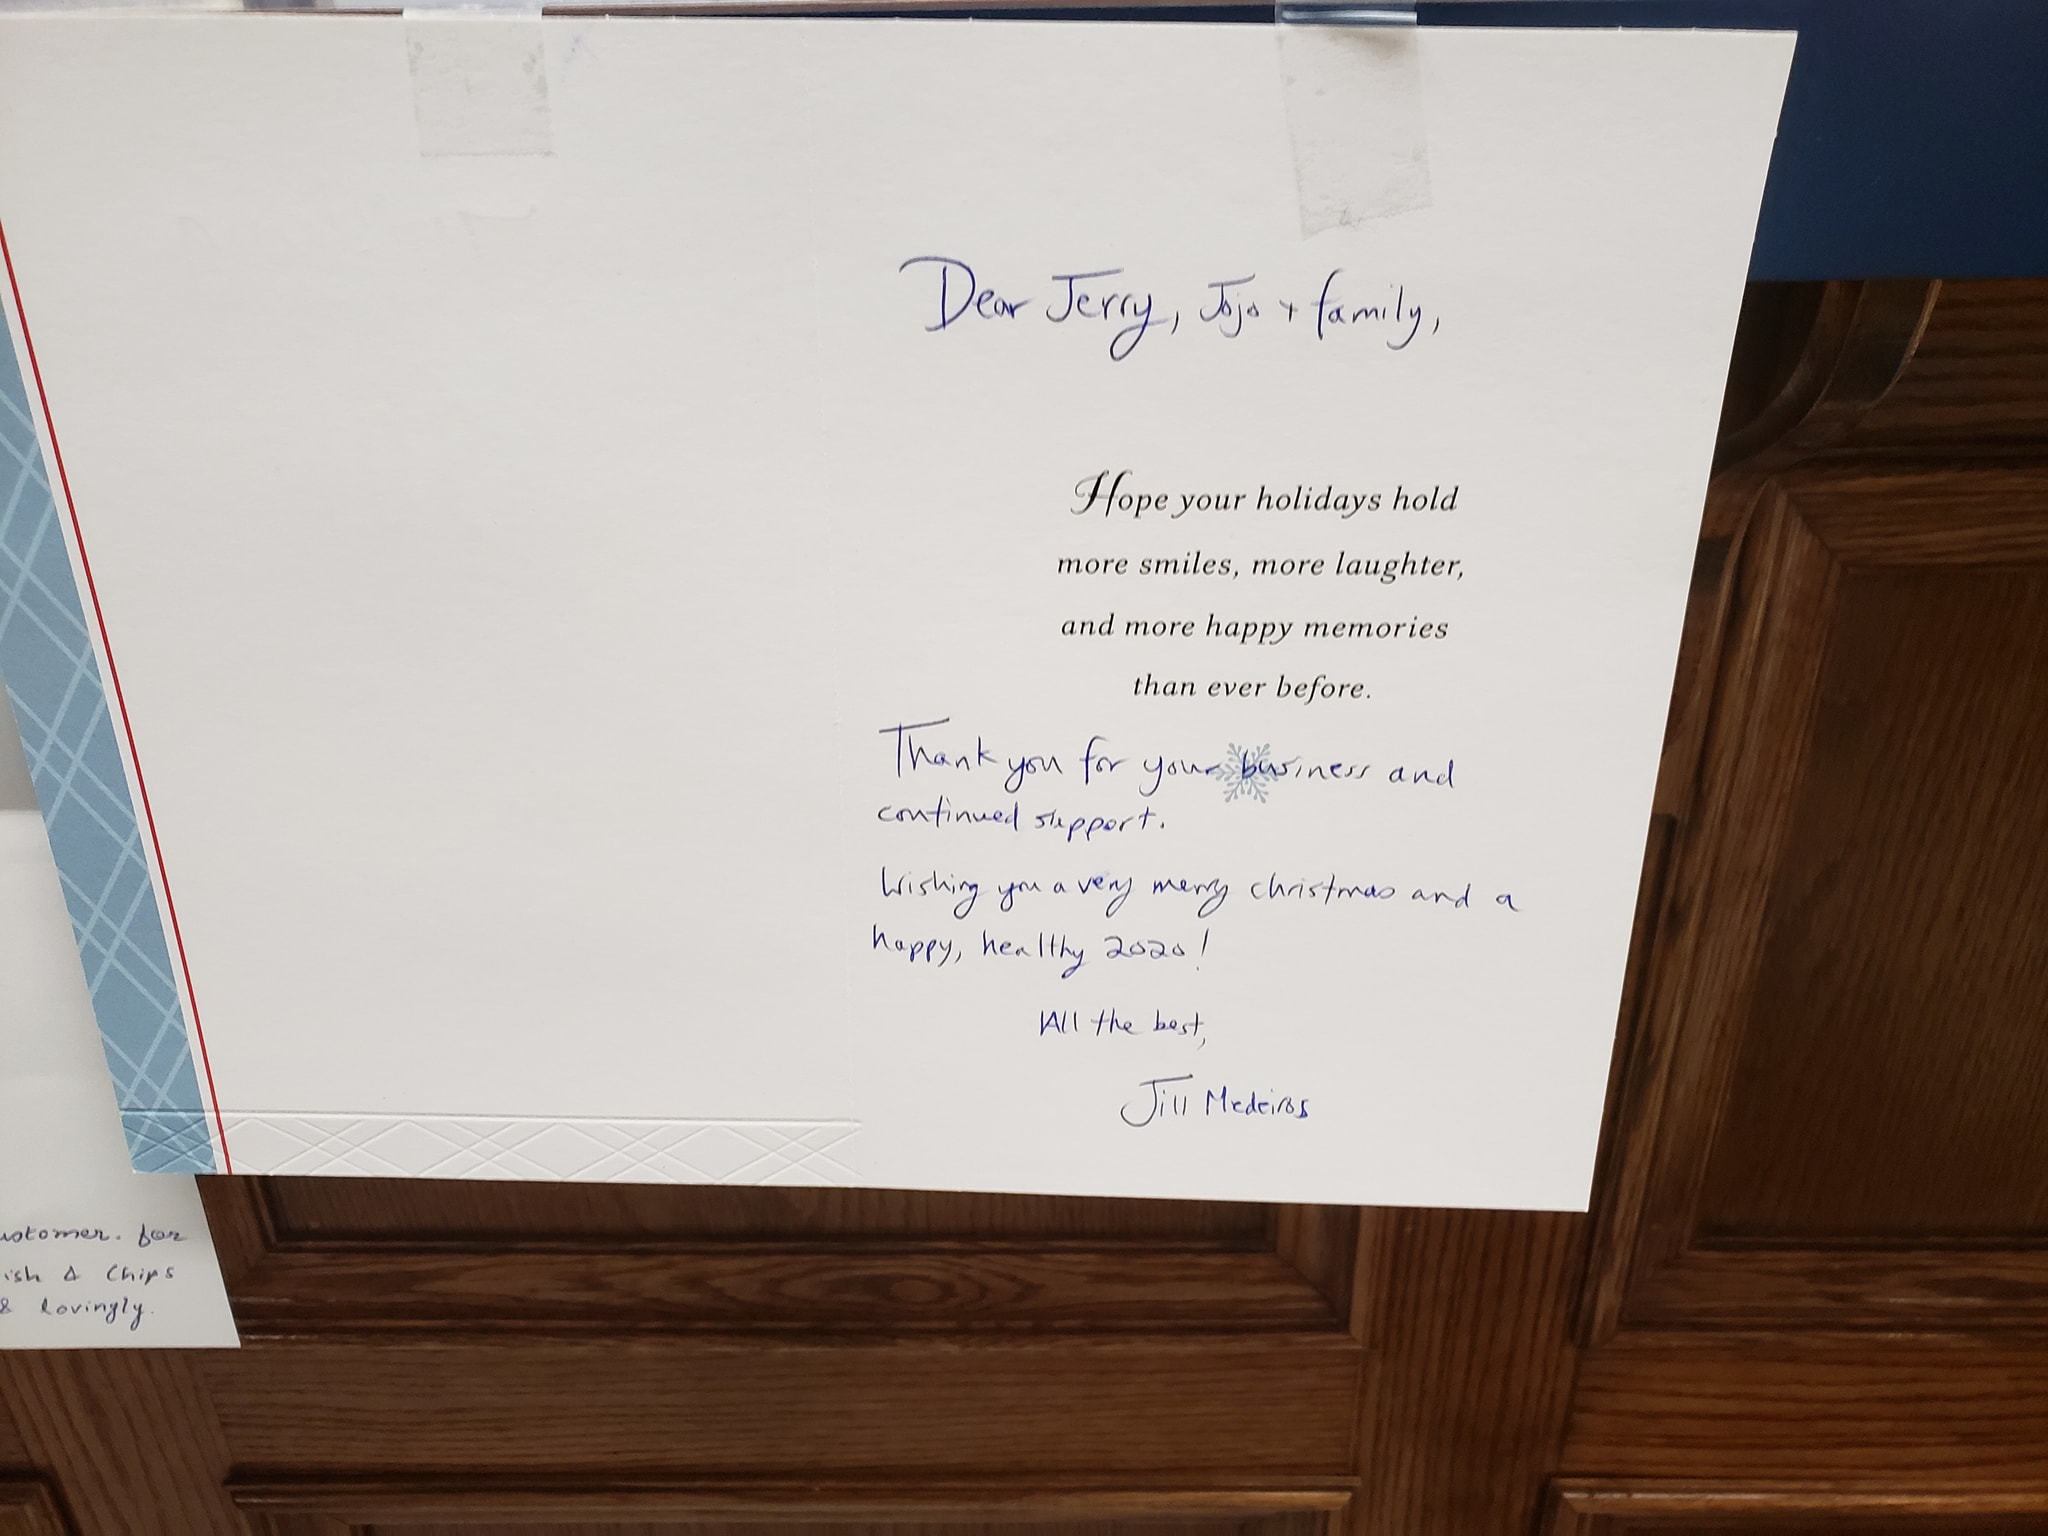 Dear Jerry, Jojo + family,
Hope your holidays hold
more smiles, more laughter,
and more happy memories
than ever before.
Thank you for your business and
continued support.
Wishing you a very merry christmas and a
happy, healthy 2020!
All the best,
Jill Medeiros
ustomer. for
ish & Chips
& lovingly.